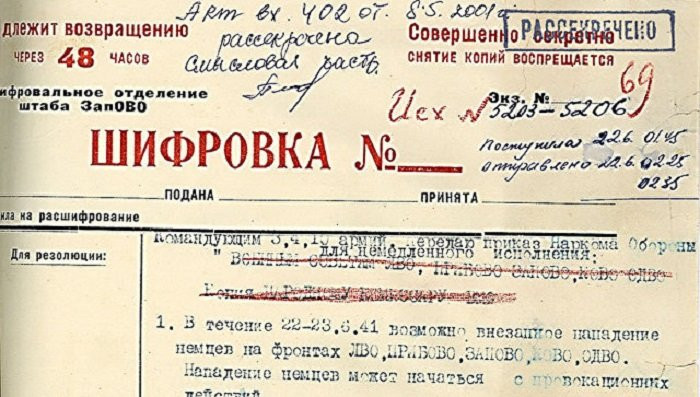 Акт вх. 402 от 8.5.2001г
рассекречено
смысловая растр.
длежит возвращению
через 48 часов
Совершенно секретно
РАССЕКРЕЧЕНО
снятие копий воспрещается
ифровальное отделение
штаба ЗапОВО
Экз. №
69
Исх № 5203-5206
ШИФРОВКА №
Поступила 22.6. 01.45
отправлено 22.6. 02.25
02.35
ПОДАНА
ПРИНЯТА
ила на расшифрование
Для резолюции:
Командующим 3,4,10 армий. Передаю приказ Наркома Обороны
для немедленного исполнения:
" ВОЕННЫМ СОВЕТАМ ЛВО, ПРИБОВО ЗАПОВО, КОВО ОДВО
Копия НАРОДНОМУ
1. В течение 22-23,6.41 возможно внезапное нападение
немцев на фронтах ЛВО,ПРИБОВО,ЗАПОВО,КОВО,ОДВО.
Нападение немцев может начаться с провокационных
действий